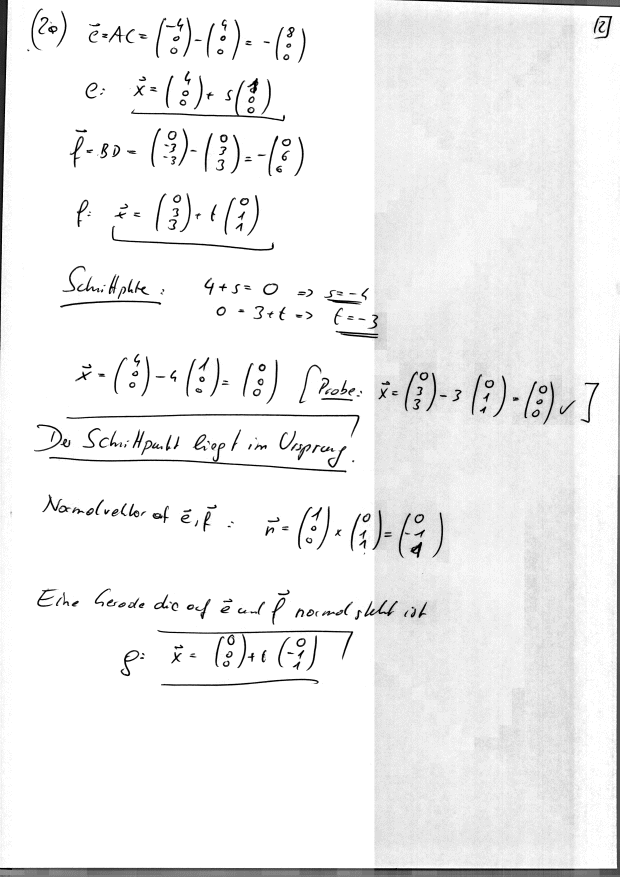 [2]
(2a) e⃗=AC= (-4 0 0) - (4 0 0) = -(8 0 0)
e: x⃗ = (4 0 0) + s(1 0 0)
f⃗=BD= (0 -3 -3) - (0 3 3) = -(0 6 6)
f: x⃗ = (0 3 3) + t(0 1 1)
Schnittpkte: 4+s=0 => s=-4
0=3+t => t=-3
x⃗ = (4 0 0) - 4(1 0 0) = (0 0 0) [Probe: x⃗ = (0 3 3) - 3(0 1 1) = (0 0 0) ✓]
Der Schnittpunkt liegt im Ursprung.
Normalvektor auf e⃗, f⃗: n⃗ = (1 0 0) × (0 1 1) = (0 -1 1)
Eine Gerade die auf e⃗ und f⃗ normal steht ist
g: x⃗ = (0 0 0) + t(0 -1 1)